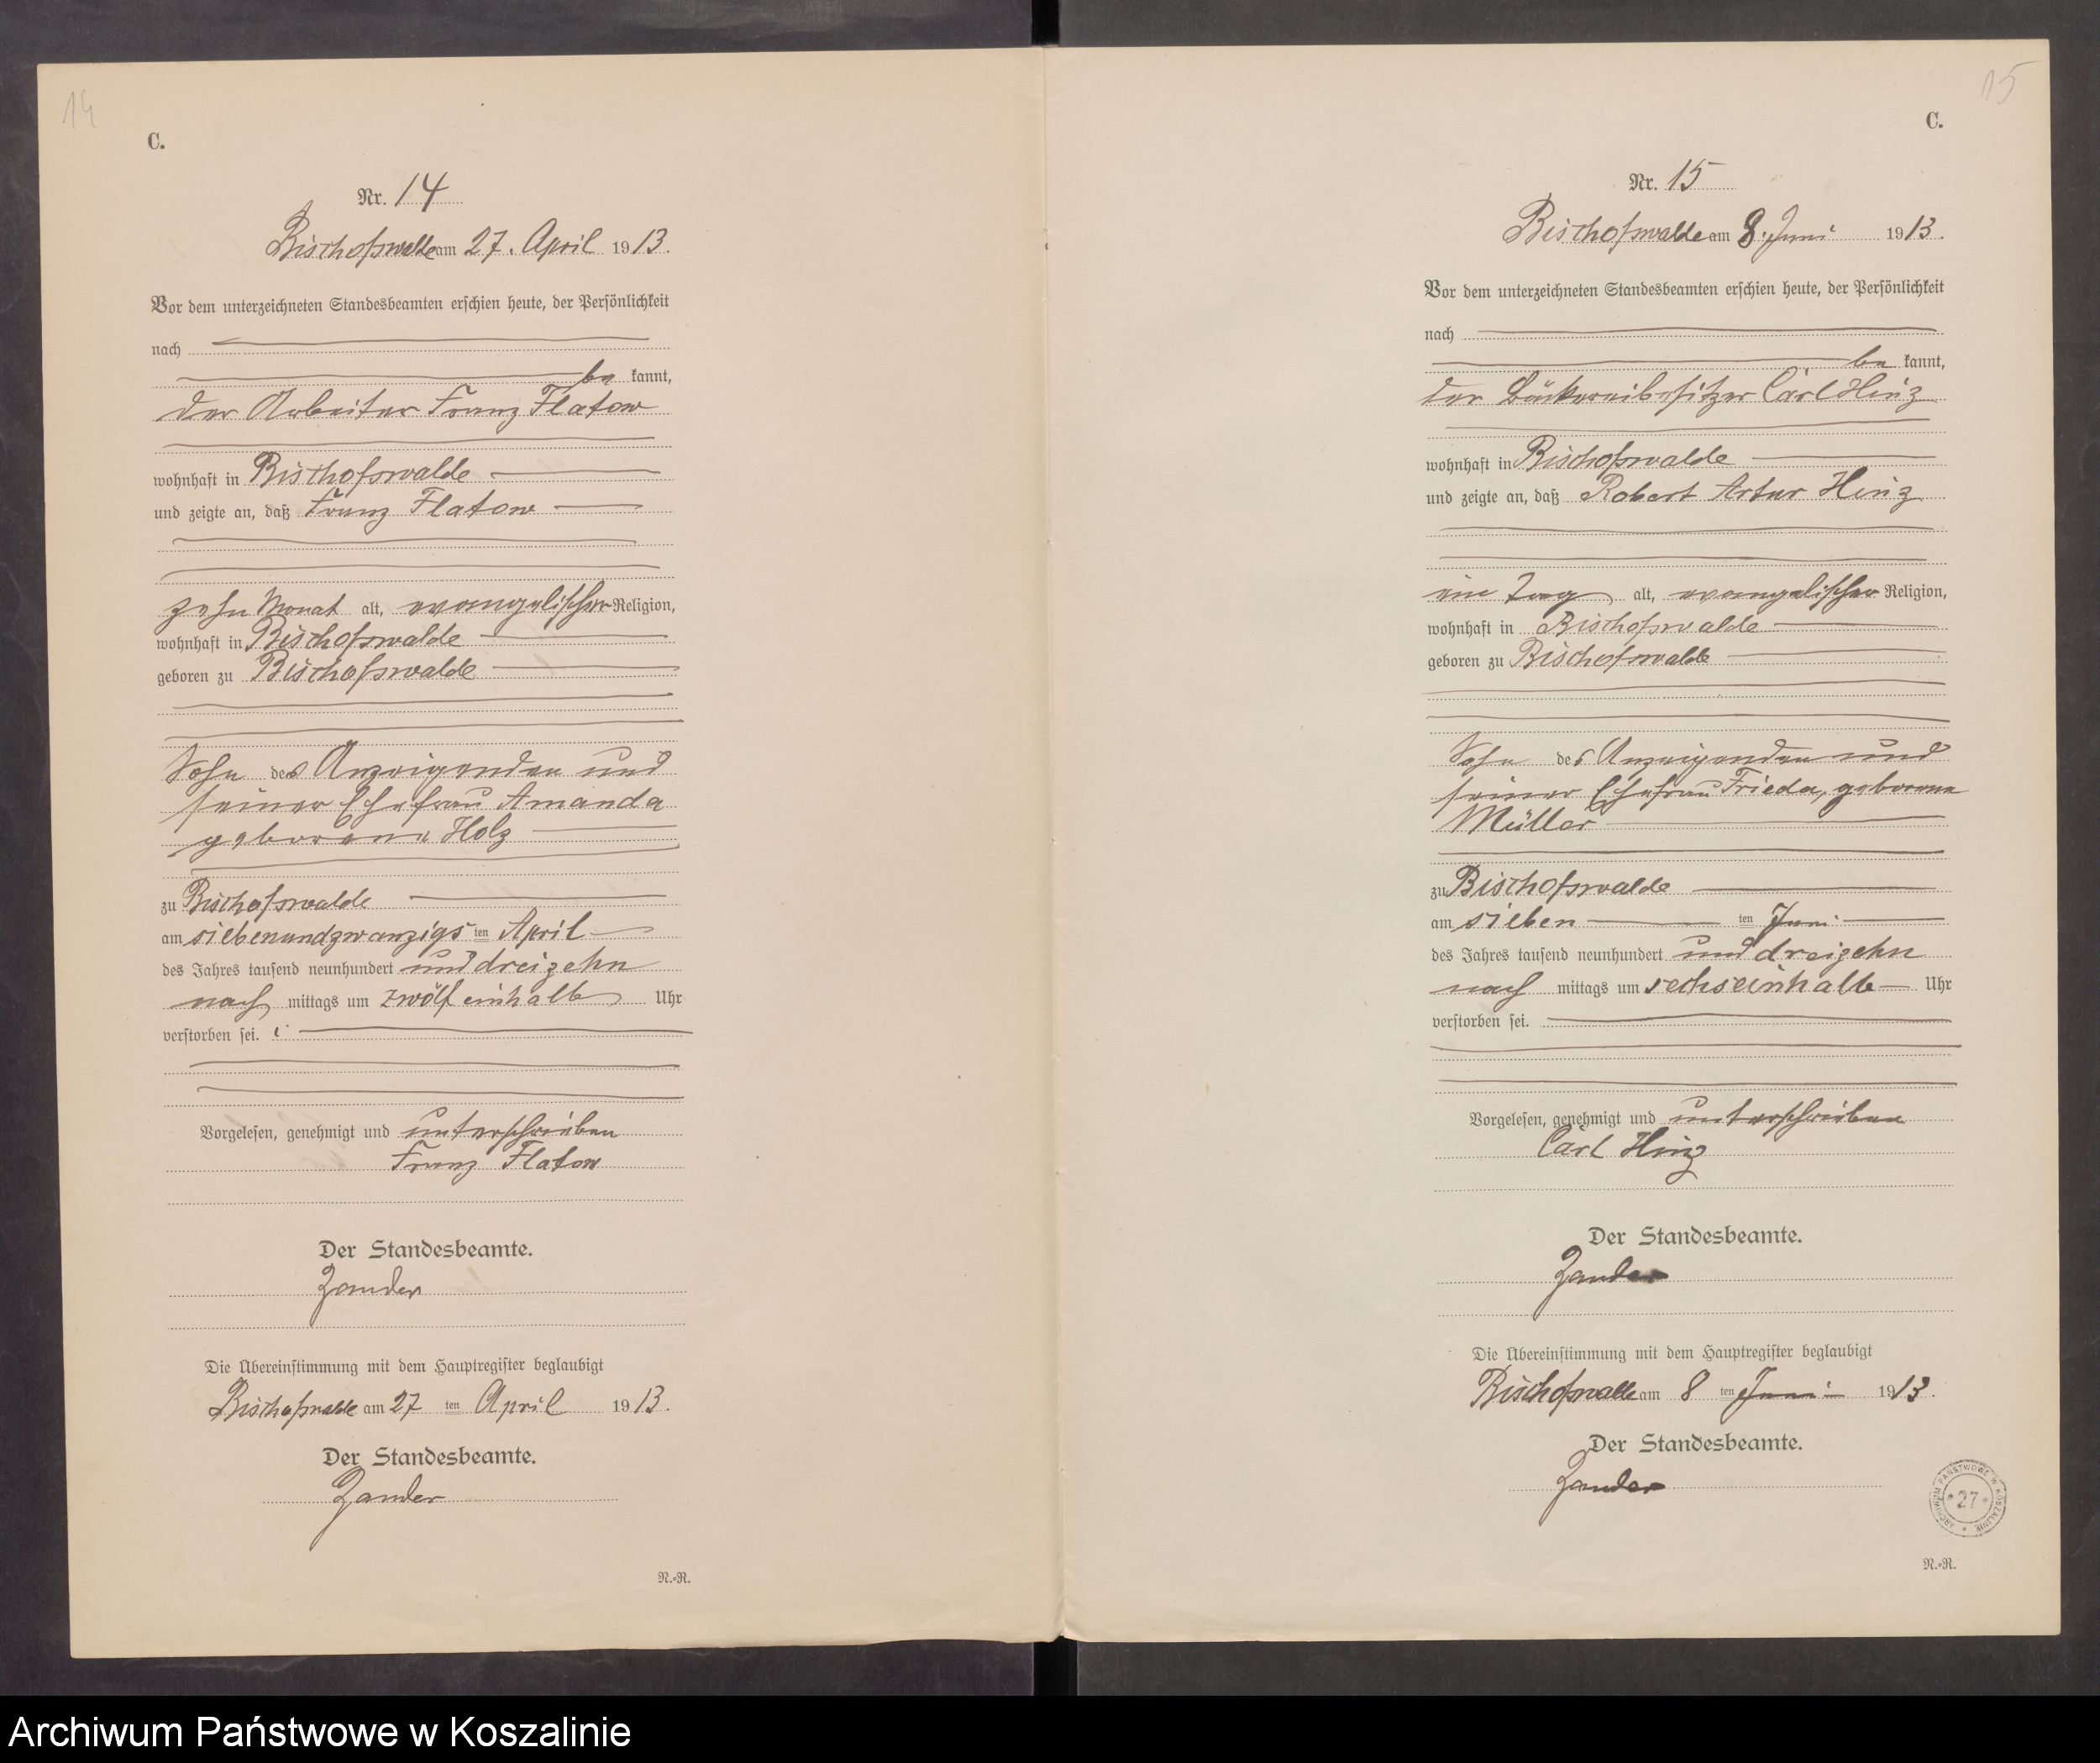 14
C.
Nr. 14
Bischofswalde am 27. April 1913.
Vor dem unterzeichneten Standesbeamten erschien heute, der Persönlichkeit
nach
be kannt,
der Arbeiter Franz Flatow
wohnhaft in Bischofswalde
und zeigte an, daß Franz Flatow
zehn Monat alt, evangelischer Religion,
wohnhaft in Bischofswalde
geboren zu Bischofswalde
Sohn des Anzeigenden und
seiner Ehefrau Amanda
geborene Holz
zu Bischofswalde
am siebenundzwanzigs ten April
des Jahres tausend neunhundert und dreizehn
nach mittags um zwölf einhalb Uhr
verstorben sei.
Vorgelesen, genehmigt und unterschrieben
Franz Flatow
Der Standesbeamte.
Zander
Die Übereinstimmung mit dem Hauptregister beglaubigt
Bischofswalde am 27 ten April 1913.
Der Standesbeamte.
Zander
N.-R.
15
C.
Nr. 15
Bischofswalde am 8. Juni 1913.
Vor dem unterzeichneten Standesbeamten erschien heute, der Persönlichkeit
nach
be kannt,
der Bäckereibesitzer Carl Hinz
wohnhaft in Bischofswalde
und zeigte an, daß Robert Artur Hinz
ein Tag alt, evangelischer Religion,
wohnhaft in Bischofswalde
geboren zu Bischofswalde
Sohn des Anzeigenden und
seiner Ehefrau Frieda, geborene
Müller
zu Bischofswalde
am sieben ten Juni
des Jahres tausend neunhundert und dreizehn
nach mittags um sechseinhalb Uhr
verstorben sei.
Vorgelesen, genehmigt und unterschrieben
Carl Hinz
Der Standesbeamte.
Zander
Die Übereinstimmung mit dem Hauptregister beglaubigt
Bischofswalde am 8 ten Juni 1913.
Der Standesbeamte.
Zander
ARCHIWUM PAŃSTWOWE W KOSZALINIE
* 27 *
N.-R.
Archiwum Państwowe w Koszalinie